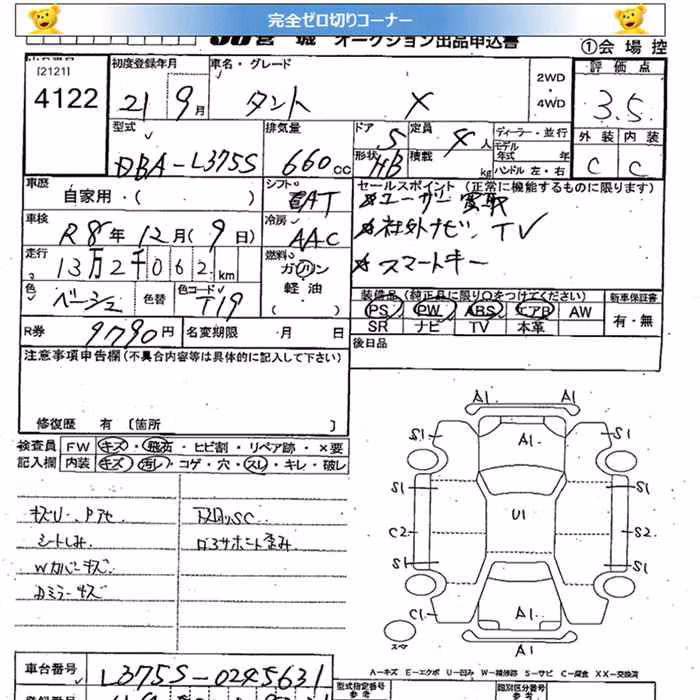 完全ゼロ切りコーナー
宮城 オークション出品申込書
①会場控
[2121]
4122
初度登録年月
21 9月
車名・グレード
タント X
2WD
・
4WD
評価点
3.5
型式
DBA-L375S
排気量
660cc
ドア 5
定員 4人
形状 HB
積載 kg
ディーラー・並行
モデル年式 年
ハンドル 左・右
外装 内装
C C
車歴
自家用・( )
シフト
AT
セールスポイント (正常に機能するものに限ります)
ユーザー買取
社外ナビ、TV
スマートキー
車検
R8年12月(9日)
冷房
AAC
走行
13万2千062km
燃料
ガソリン
軽油
( )
色
ベージュ
色替
色コード
T19
装備品 (純正具に限り○をつけてください)
PS PW ABS エアB AW
SR ナビ TV 本革
新車保証書
有・無
R券
9790円
名変期限 月 日
後日品
注意事項申告欄(不具合内容等は具体的に記入して下さい)
修復歴 有 [箇所 ]
検査員 FW キズ・飛石・ヒビ割・リペア跡・×要
記入欄 内装 キズ・汚レ・コゲ・穴・スレ・キレ・破レ
シートしみ
Wカバーキズ
Dミラーキズ
A1 A1
S1 A1 S1
S1 S1
C2 U1 S2
S1 S1
C1 A1
A1
スペア
A-キズ E-エクボ U-凹み W-補修跡 S-サビ C-腐食 XX-交換済
車台番号
L375S-0245631
型式指定番号
参考
類別区分番号
参考